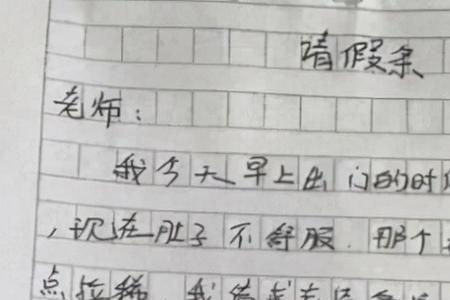 请假条
老师：
我今天早上出门的时
，现在肚子不舒服.那个
点拉稀